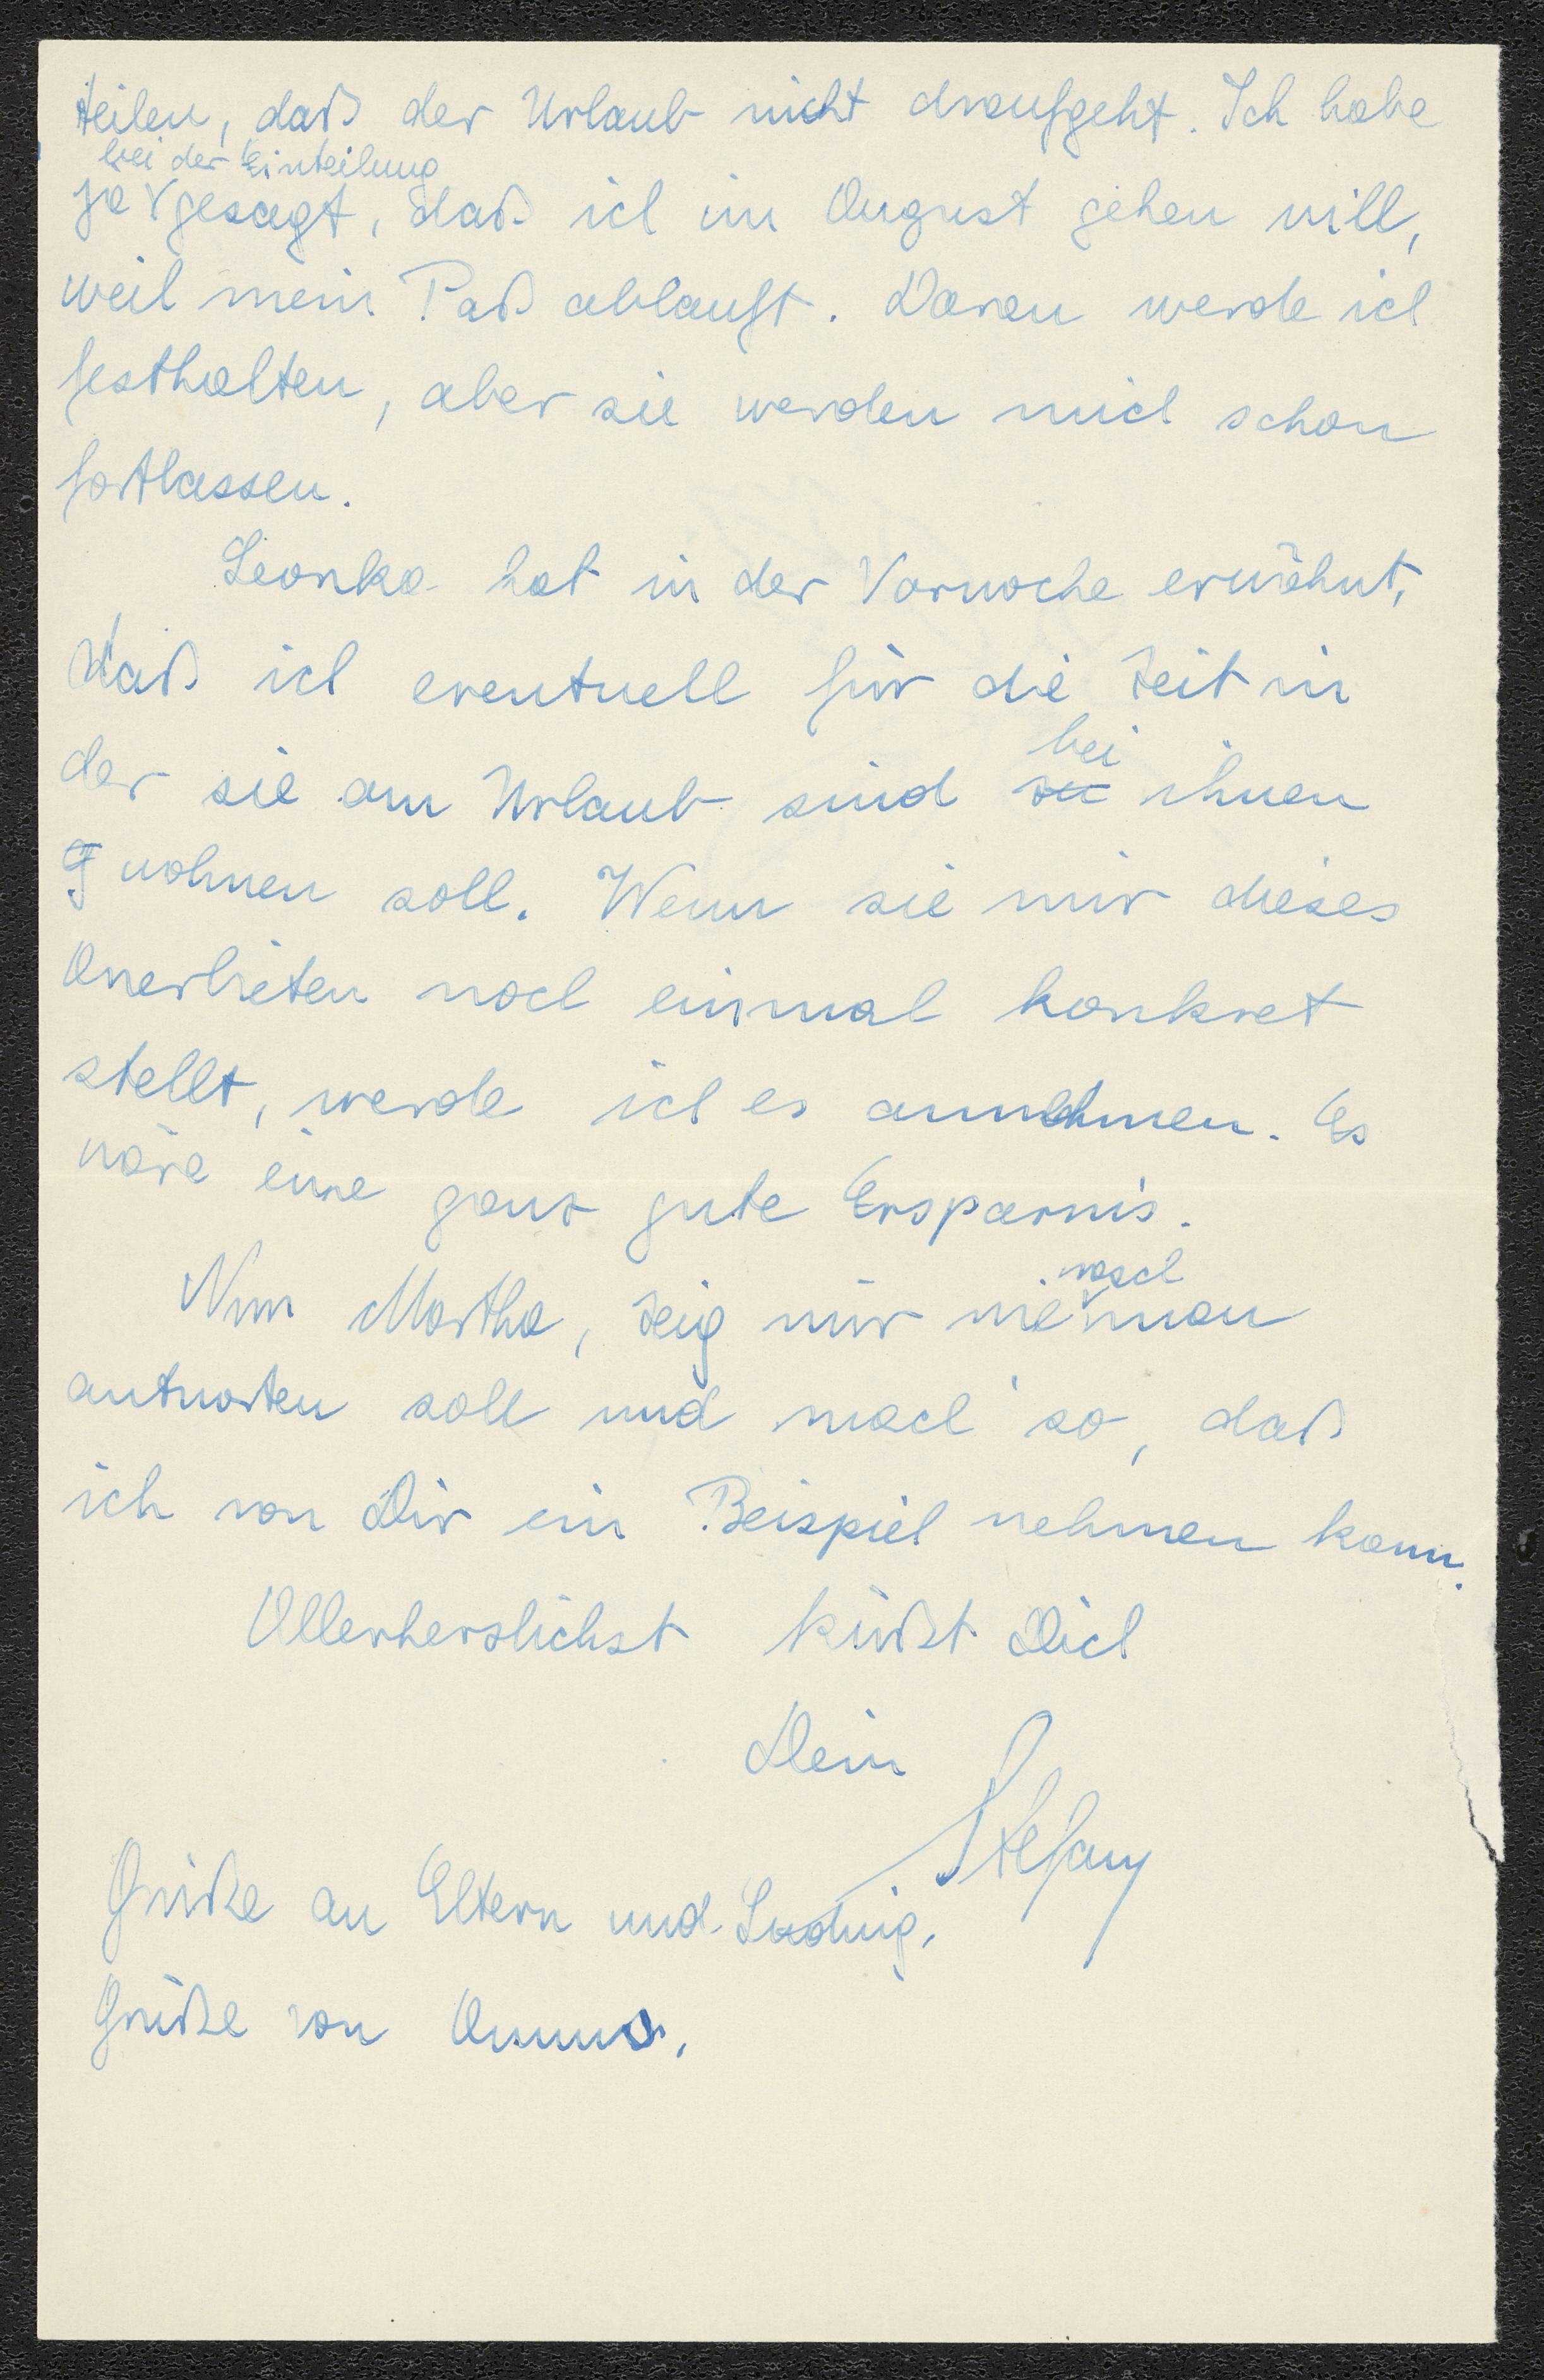 teilen, daß der Urlaub nicht draufgeht. Ich habe
bei der Einteilung
ja gesagt, daß ich im August gehen will,
weil mein Paß ablauft. Daran werde ich
festhalten, aber sie werden mich schon
fortlassen.
Leonka hat in der Vorwoche erwähnt,
daß ich eventuell für die Zeit in
bei
der sie am Urlaub sind zu ihnen
wohnen soll. Wenn sie mir dieses
Anerbieten noch einmal konkret
stellt, werde ich es annehmen. Es
wäre eine ganz gute Ersparnis.
rasch
Nun Martha, zeig mir wie man
antworten soll und mach so, daß
ich von Dir ein Beispiel nehmen kann.
Allerherzlichst küßt Dich
Dein
Stefany
Grüße an Eltern und Ludwig,
Grüße von